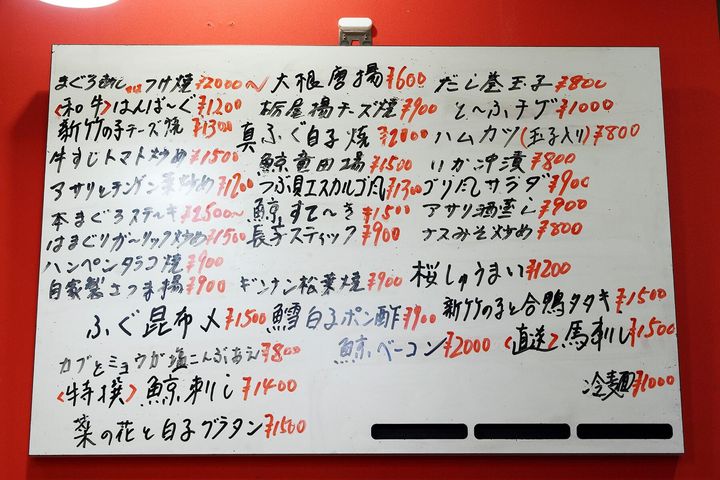 まぐろ つけ焼 ¥2000〜 大根唐揚 ¥600 だし巻玉子 ¥800
<和牛> はんばーぐ ¥1200 栃尾揚チーズ焼 ¥900 とーふチゲ ¥1000
新竹の子チーズ焼 ¥1300 真ふぐ白子焼 ¥2000 ハムカツ(玉子入り) ¥800
牛すじトマト炒め ¥1500 鯨竜田揚 ¥1500 いか沖漬 ¥800
アサリとチンゲン菜炒め ¥1200 つぶ貝エスカルゴ風 ¥1300 ゴリ風サラダ ¥900
本まぐろステーキ ¥2500〜 鯨すてーき ¥1500 アサリ酒蒸し ¥900
はまぐりガーリック炒め ¥1500 長芋スティック ¥900 ナスみそ炒め ¥800
ハンペンタラコ焼 ¥900
自家製さつま揚 ¥900 ギンナン松葉焼 ¥900 桜しゅうまい ¥1200
ふぐ昆布〆 ¥1500 鱈白子ポン酢 ¥900 新竹の子と合鴨タタキ ¥1500
カブとミョウガ塩こんぶあえ ¥800 鯨ベーコン ¥2000 <直送> 馬刺し ¥1500
<特撰> 鯨刺し ¥1400 冷麺 ¥1000
菜の花と白子グラタン ¥1500